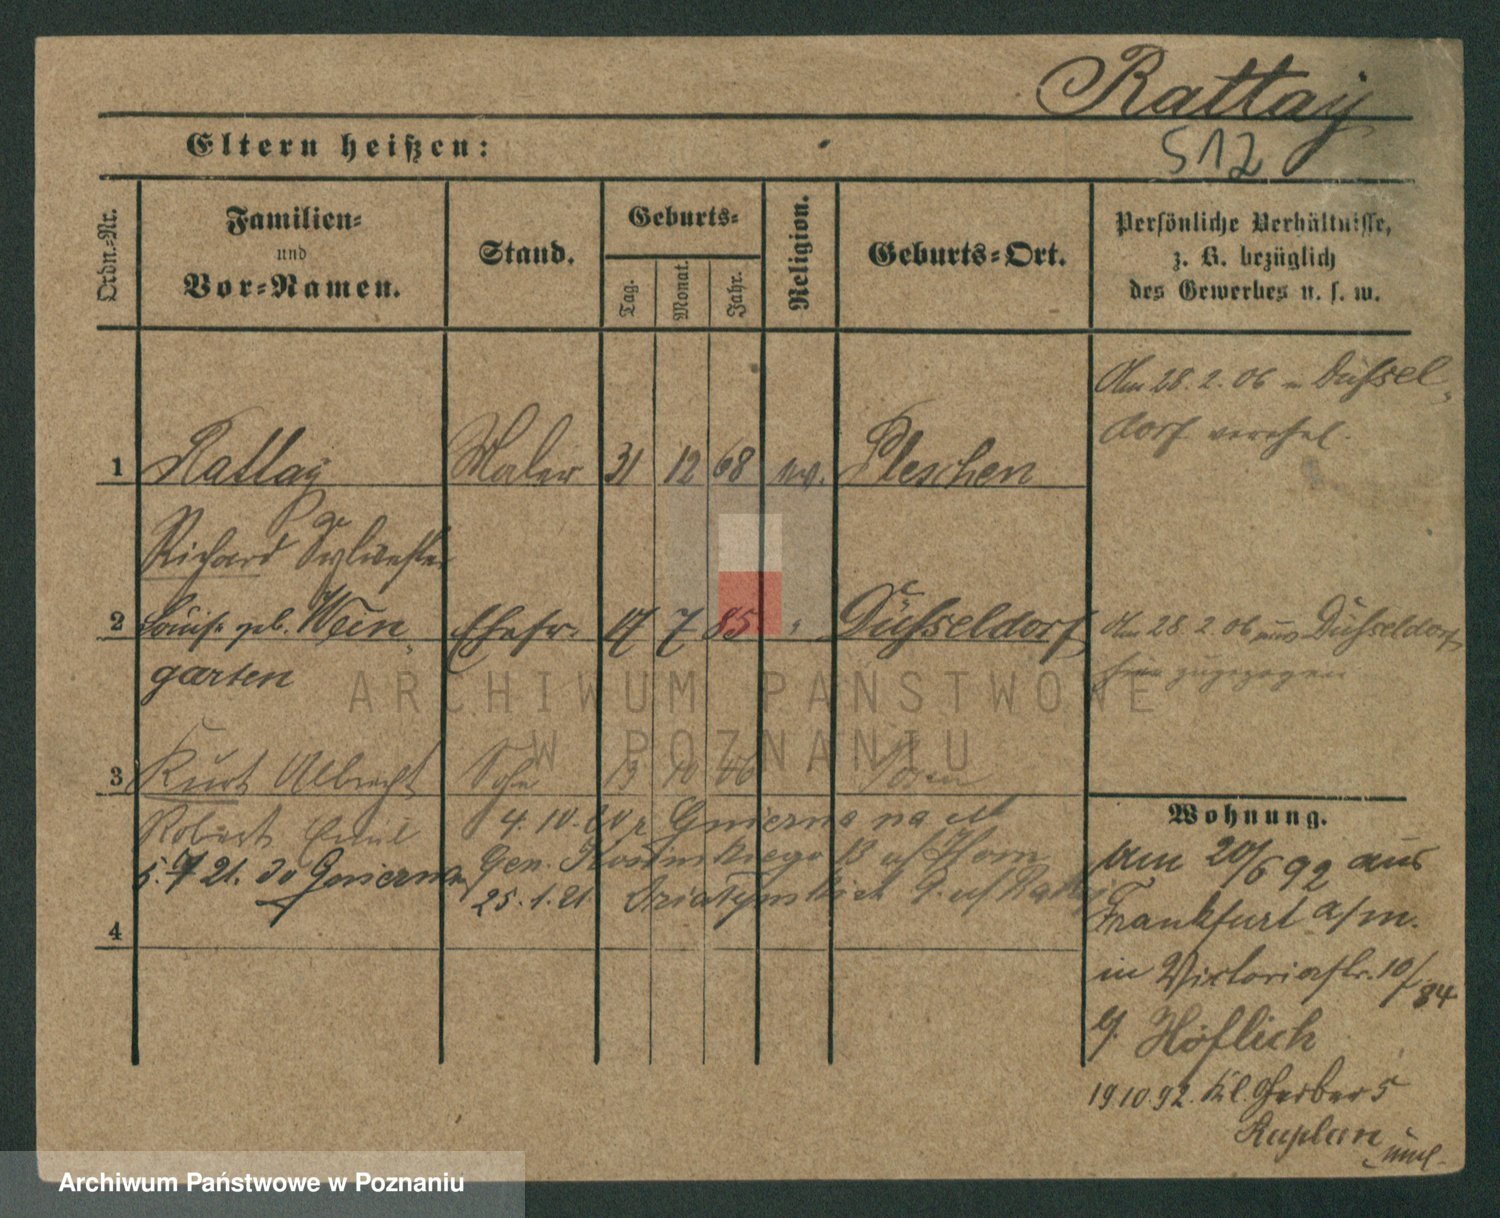 Rattay
512
Eltern heißen:
Ordn.-Nr.
Familien-
und
Vor-Namen.
Stand.
Geburts-
Tag.
Monat.
Jahr.
Religion.
Geburts-Ort.
Persönliche Verhältnisse,
z. B. bezüglich
des Gewerbes u. s. w.
Am 28. 2. 06 in Düssel-
dorf verehel.
1 Rattay Maler 31 12 68 ev. Pleschen
Richard Sylvester
2 Louise geb. Wein- Ehefr. 17 7 85 " Düsseldorf
garten
Am 28 2. 06 aus Düsseldorf
hier zugezogen
3 Kurt Albrecht Sohn 19 10 06 Posen
Robert Emil
4. 10. 20 z Gniezna na
5. 7 21. do Gniezna
Gen.
25. 1. 21.
4
Wohnung.
Am 20/6 92 aus
Frankfurt a/m.
in Victoriastr. 10/
84
Höflich
19 10. 92. Kl. Gerber 5
Kaplan
ARCHIWUM PAŃSTWOWE
W POZNANIU
Archiwum Państwowe w Poznaniu